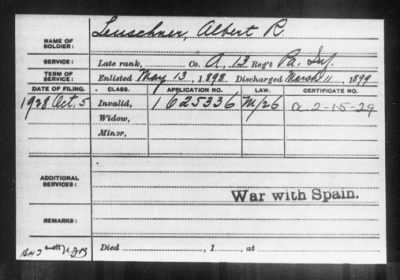 NAME OF SOLDIER: Leuschner, Albert R.
SERVICE: Late rank, Co. A, 13 Reg't Pa. Inf.
TERM OF SERVICE: Enlisted May 13, 1898. Discharged March 11, 1899
DATE OF FILING. CLASS. APPLICATION NO. LAW. CERTIFICATE NO.
1928 Oct. 5 Invalid, 1625336 M/26 a. 2-15-29
Widow,
Minor,
ADDITIONAL SERVICES:
War with Spain.
REMARKS:
Died , 1 , at